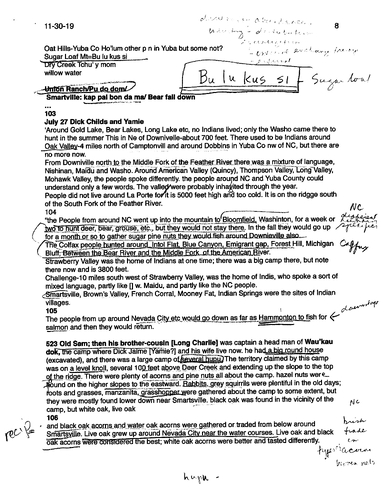 11-30-19
8
Oat Hills-Yuba Co Ho'lum other p n in Yuba but some not?
Sugar Loaf Mt=Bu lu kus si
Dry Creek Tchu' y mom
willow water
Bu lu kus si - Sugar loaf
Union Ranch/Pu do dom/
Smartville: kap pal bon da ma/ Bear fall down
...
103
July 27 Dick Childs and Yamie
'Around Gold Lake, Bear Lakes, Long Lake etc, no Indians lived; only the Washo came there to
hunt in the summer This in Ne of Downieville-about 700 feet. There used to be Indians around
Oak Valley-4 miles north of Camptonvill and around Dobbins in Yuba Co nw of NC, but there are
no more now.
From Downieville north to the Middle Fork of the Feather River there was a mixture of language,
Nishinan, Maidu and Washo. Around American Valley (Quincy), Thompson Valley, Long Valley,
Mohawk Valley, the people spoke differently. the people around NC and Yuba County could
understand only a few words. The valley were probably inhabited through the year.
People did not live around La Porte for it is 5000 feet high and too cold. It is on the ridgge south
of the South Fork of the Feather River.
104
"The people from around NC went up into the mountain to Bloomfield, Washinton, for a week or
two to hunt deer, bear, grouse, etc., but they would not stay there. In the fall they would go up
for a month or so to gather sugar pine nuts they would fish around Downieville also....
The Colfax people hunted around, Intol Flat, Blue Canyon, Emigrant gap, Forest Hill, Michigan
Bluff, Between the Bear River and the Middle Fork of the American River.
Strawberry Valley was the home of Indians at one time; there was a big camp there, but note
there now and is 3800 feet.
Challenge-10 miles south west of Strawberry Valley, was the home of Indis, who spoke a sort of
mixed language, partly like [] w. Maidu, and partly like the NC people.
Smartsville, Brown's Valley, French Corral, Mooney Fat, Indian Springs were the sites of Indian
villages.
105
The people from up around Nevada City etc would go down as far as Hammonton to fish for
salmon and then they would return.
523 Old Sem; then his brother-cousin [Long Charlie] was captain a head man of Wau'kau
dok, the camp where Dick Jaime [Yamie?] and his wife live now. he had a big round house
(excavated), and there was a large camp of several hupu. The territory claimed by this camp
was on a level knoll, several 100 feet above Deer Creek and extending up the slope to the top
of the ridge. There were plenty of acorns and pine nuts all about the camp. hazel nuts were
found on the higher slopes to the eastward. Rabbits, grey squirrels were plentiful in the old days;
roots and grasses, manzanita, grasshopper were gathered about the camp to some extent, but
they were mostly found lower down near Smartsville. black oak was found in the vicinity of the
camp, but white oak, live oak
106
and black oak acorns and water oak acorns were gathered or traded from below around
Smartsville. Live oak grew up around Nevada City near the water courses. Live oak and black
oak acorns were considered the best; white oak acorns were better and tasted differently.
NC
NC
hupu -